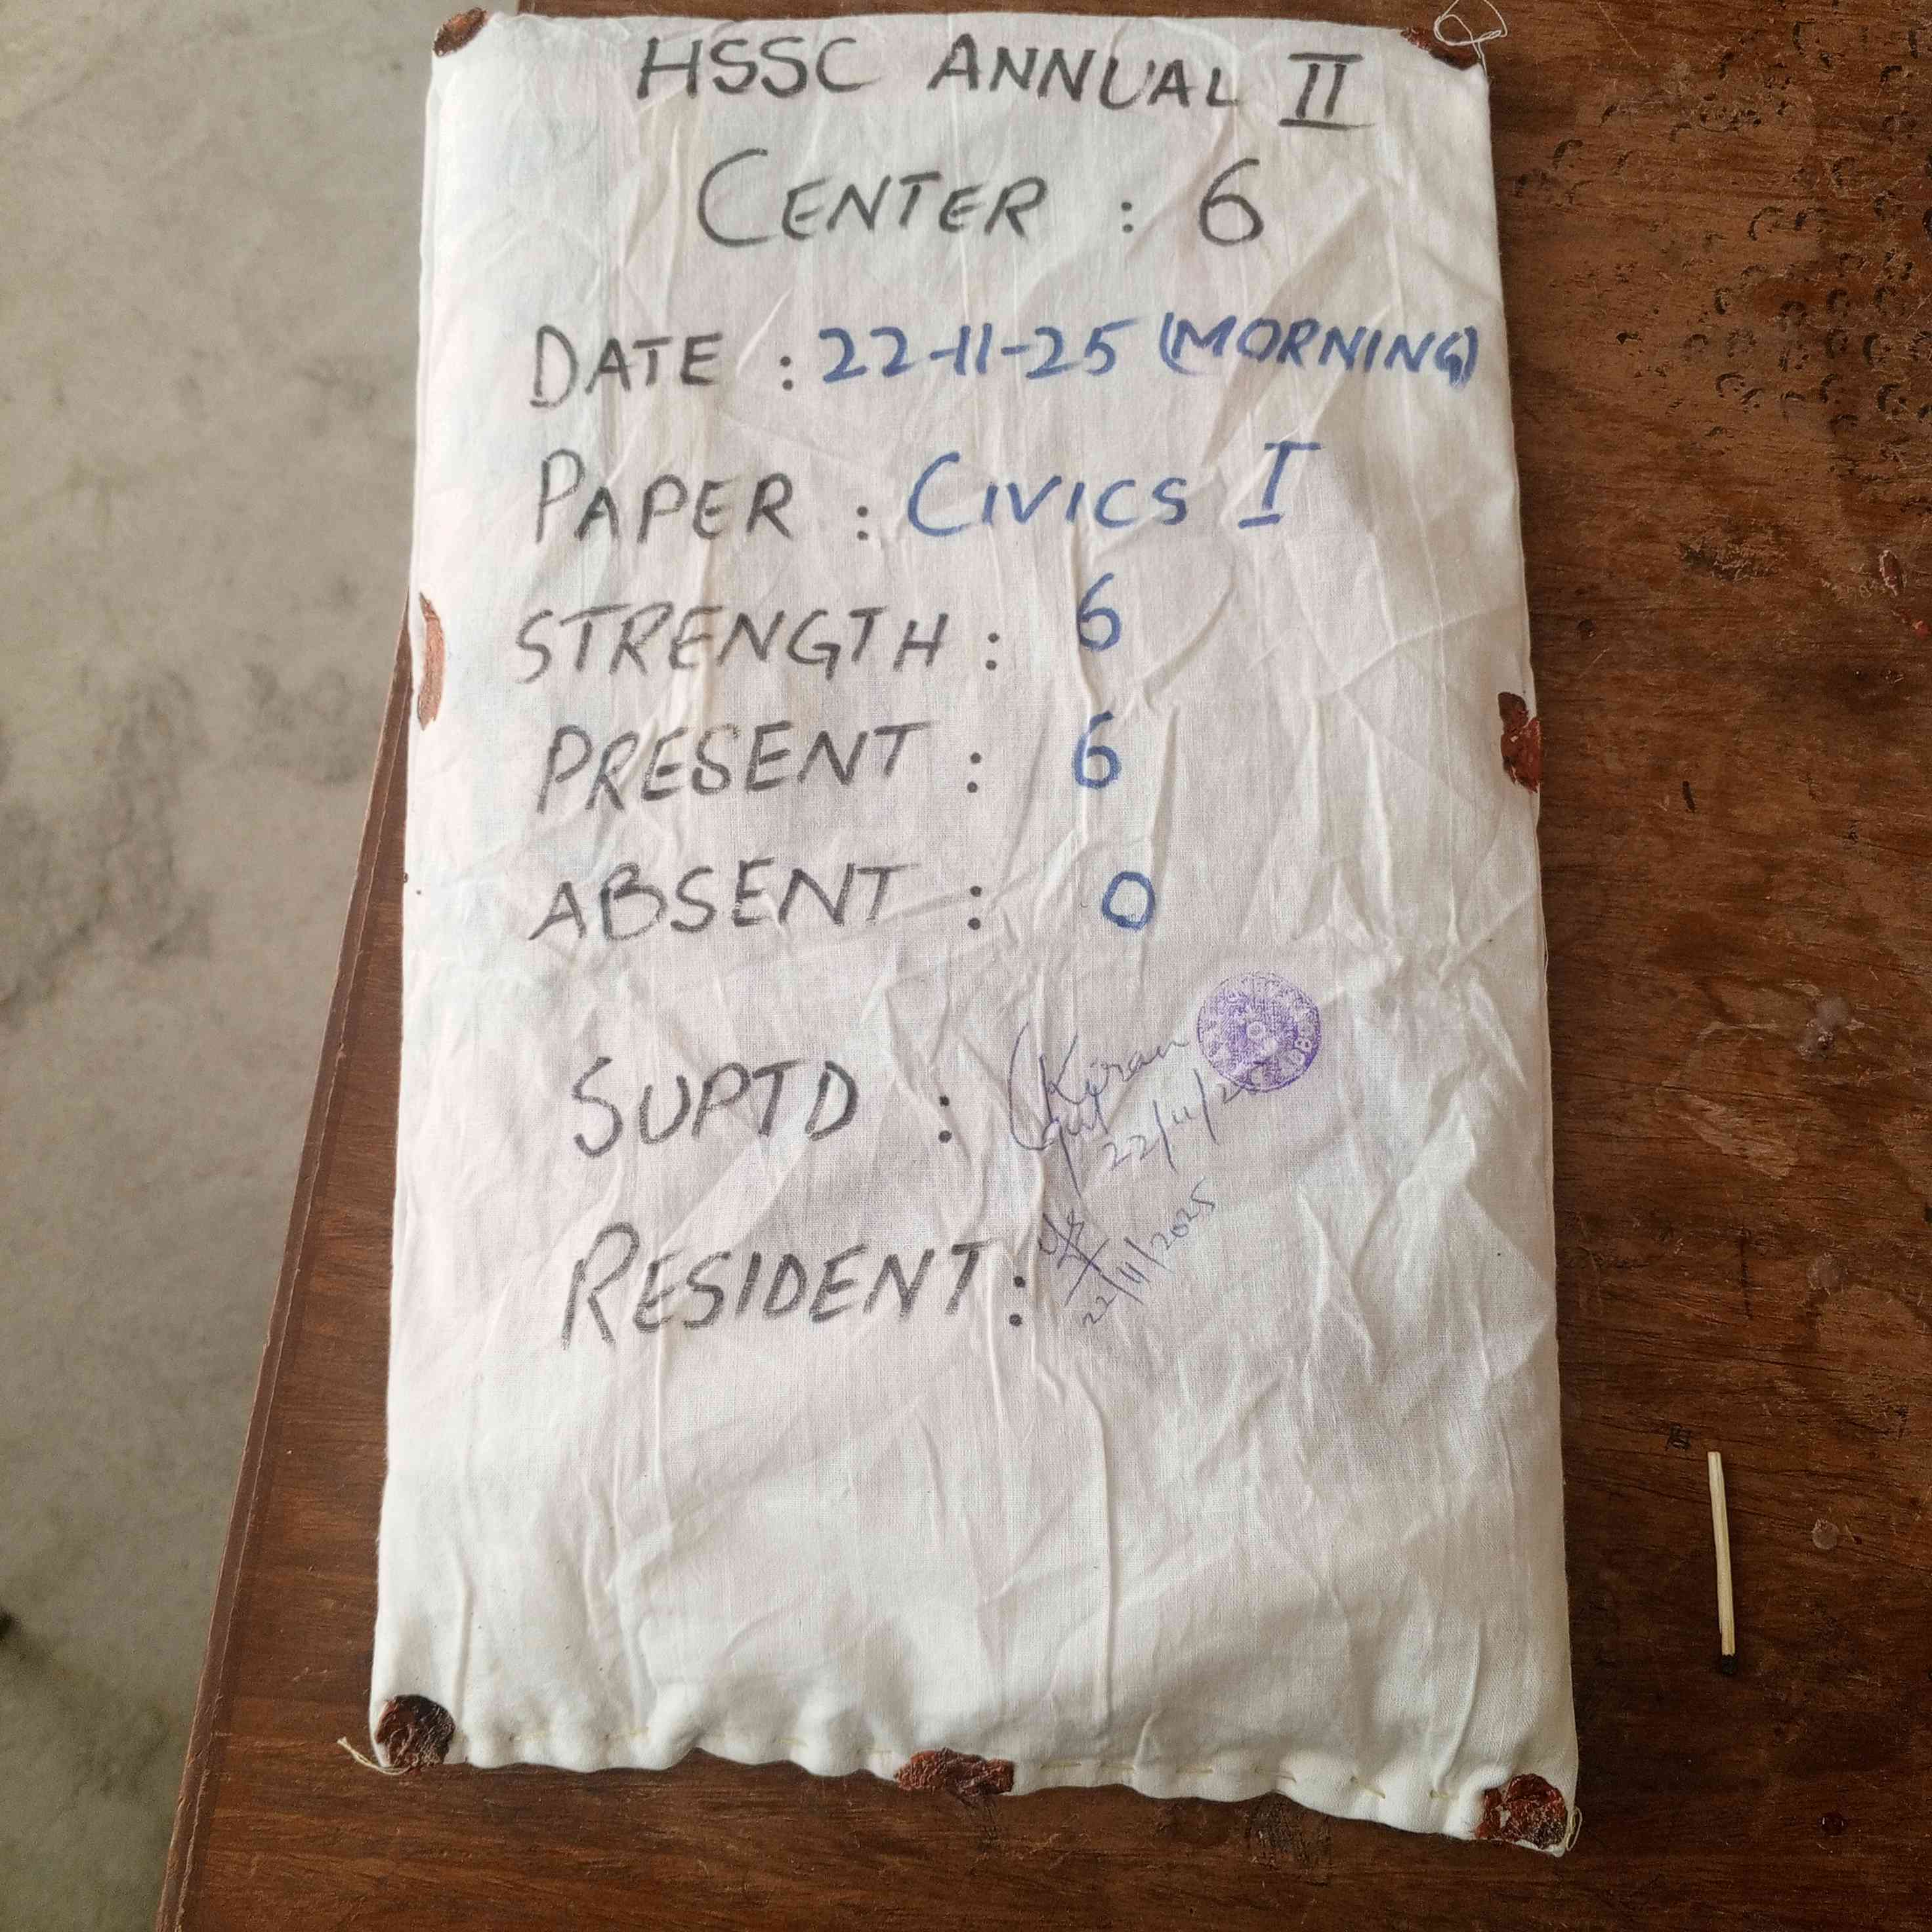 HSSC ANNUAL II
CENTER : 6
DATE : 22-11-25 (MORNING)
PAPER : CIVICS I
STRENGTH : 6
PRESENT : 6
ABSENT : 0
SUPTD : Kiran
22/11/25
RESIDENT :
22/11/2025